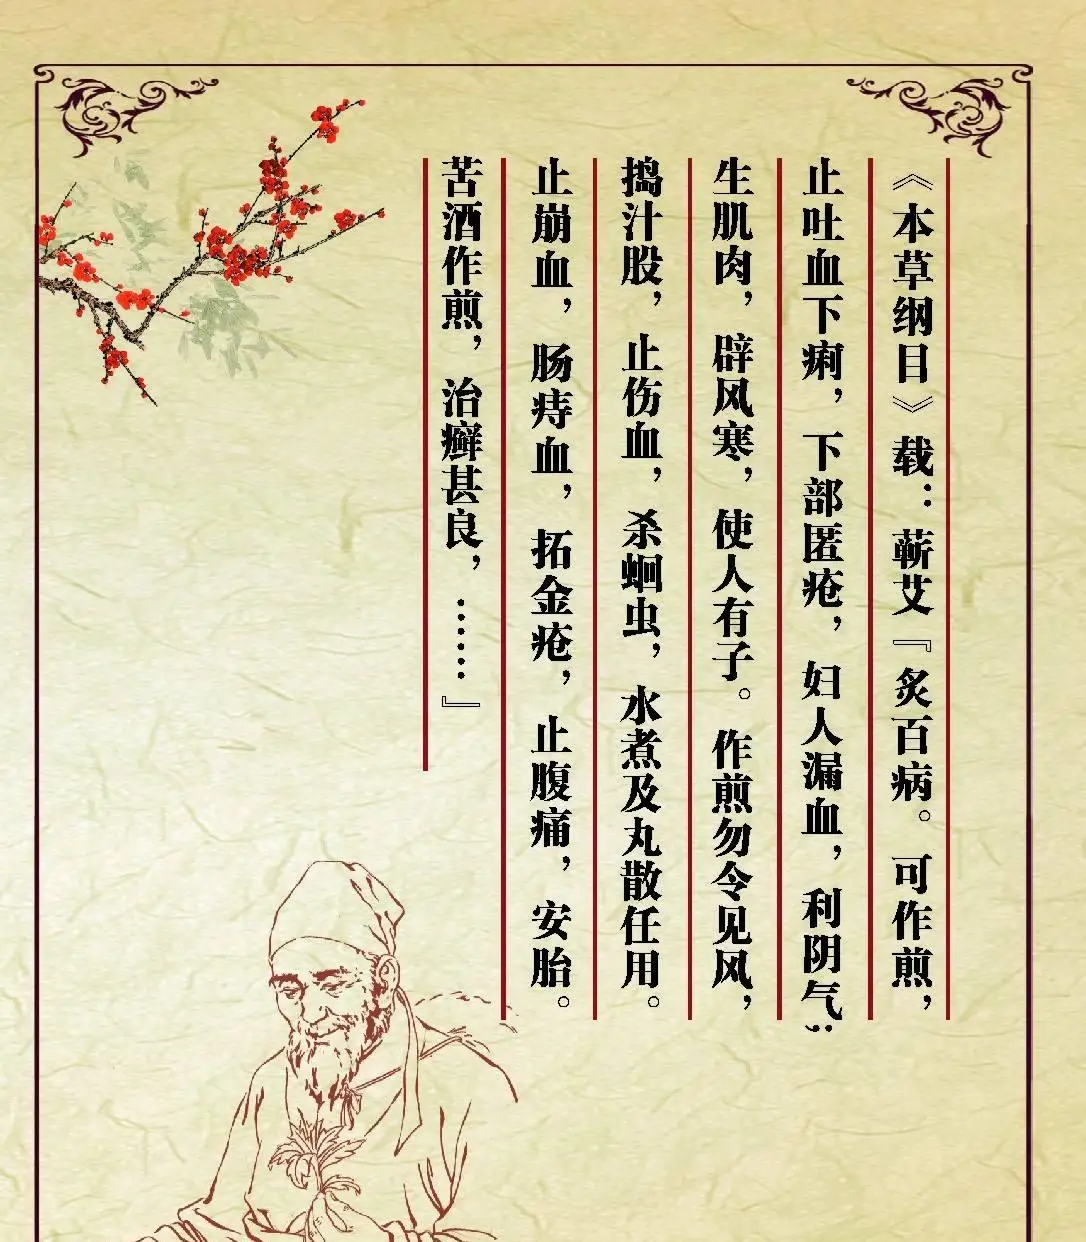 《本草纲目》载：蕲艾『炙百病。可作煎，
止吐血下痢，下部匿疮，妇人漏血，利阴气，
生肌肉，辟风寒，使人有子。作煎勿令见风，
捣汁股，止伤血，杀蛔虫，水煮及丸散任用。
止崩血，肠痔血，拓金疮，止腹痛，安胎。
苦酒作煎，治癣甚良，……』